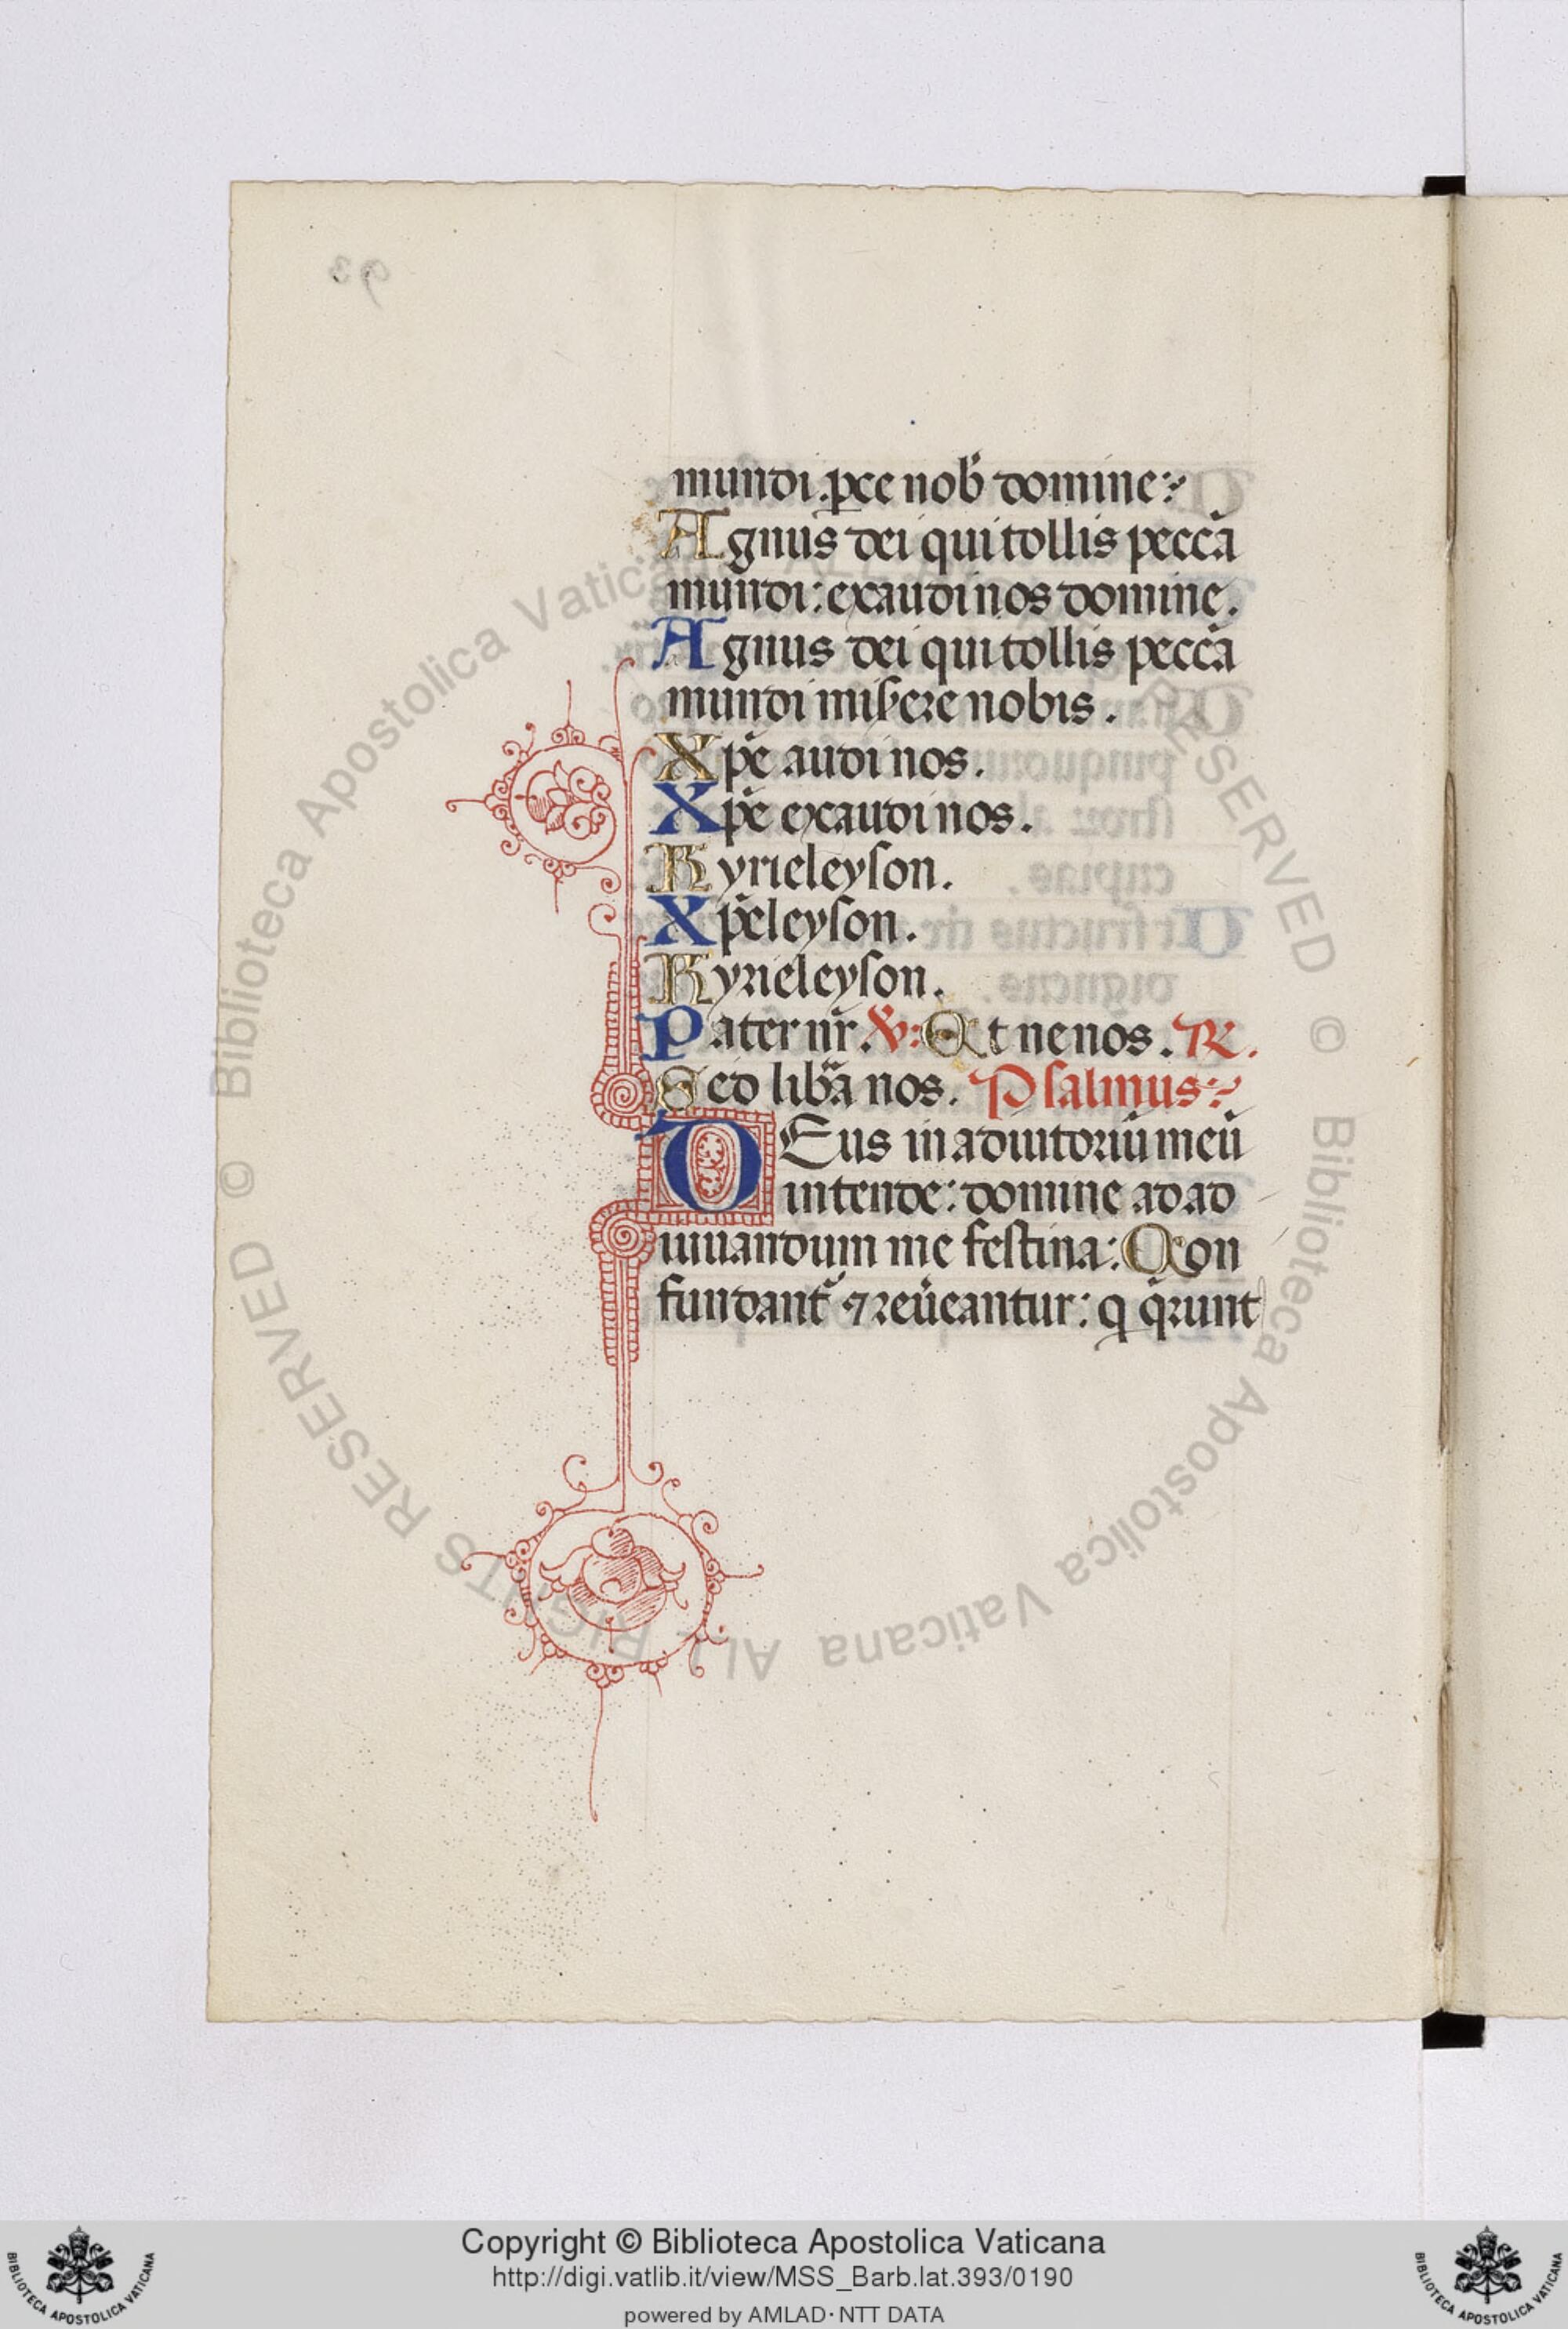 93
mundi.ꝑce nob̾ domine:⁊
Agnus dei qui tollis peccā
mundi: exaudi nos domine.
Agnus dei qui tollis peccā
mundi miẜere nobis.
Xp̄e audi nos.
Xp̄e exaudi nos.
Kyrieleyſon.
Xp̄eleyſon.
Kyrieleyſon.
Pater nr̄. ℣: Et ne nos. R.
Sed liba nos. Psalmus:⁊
DEus in adiutoriū meū
intende: domine ad ad
iuuandum me feſtina: Con
fundant᷑ ⁊ reu̾eantur: q q̄runt
© Biblioteca Apostolica Vaticana ALL RIGHTS RESERVED © Biblioteca Apostolica Vaticana ALL RIGHTS RESERVED
Copyright © Biblioteca Apostolica Vaticana
http://digi.vatlib.it/view/MSS_Barb.lat.393/0190
powered by AMLAD·NTT DATA
BIBLIOTECA APOSTOLICA VATICANA
BIBLIOTECA APOSTOLICA VATICANA